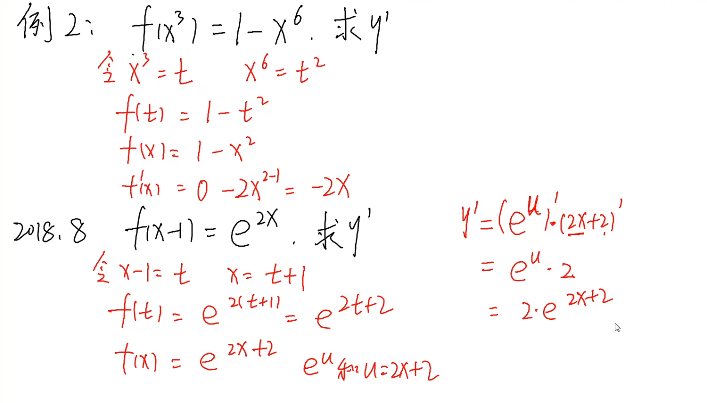 例2: f(x³)=1-x⁶. 求y'
令x³=t x⁶=t²
f(t)=1-t²
f(x)=1-x²
f'(x)=0-2x²⁻¹=-2x
2018.8 f(x-1)=e²ˣ. 求y'
令x-1=t x=t+1
f(t)=e^{2(t+1)}=e^{2t+2}
f(x)=e^{2x+2} e^u和u=2x+2
y'=(e^u)'·(2x+2)'
=e^u·2
=2·e^{2x+2}